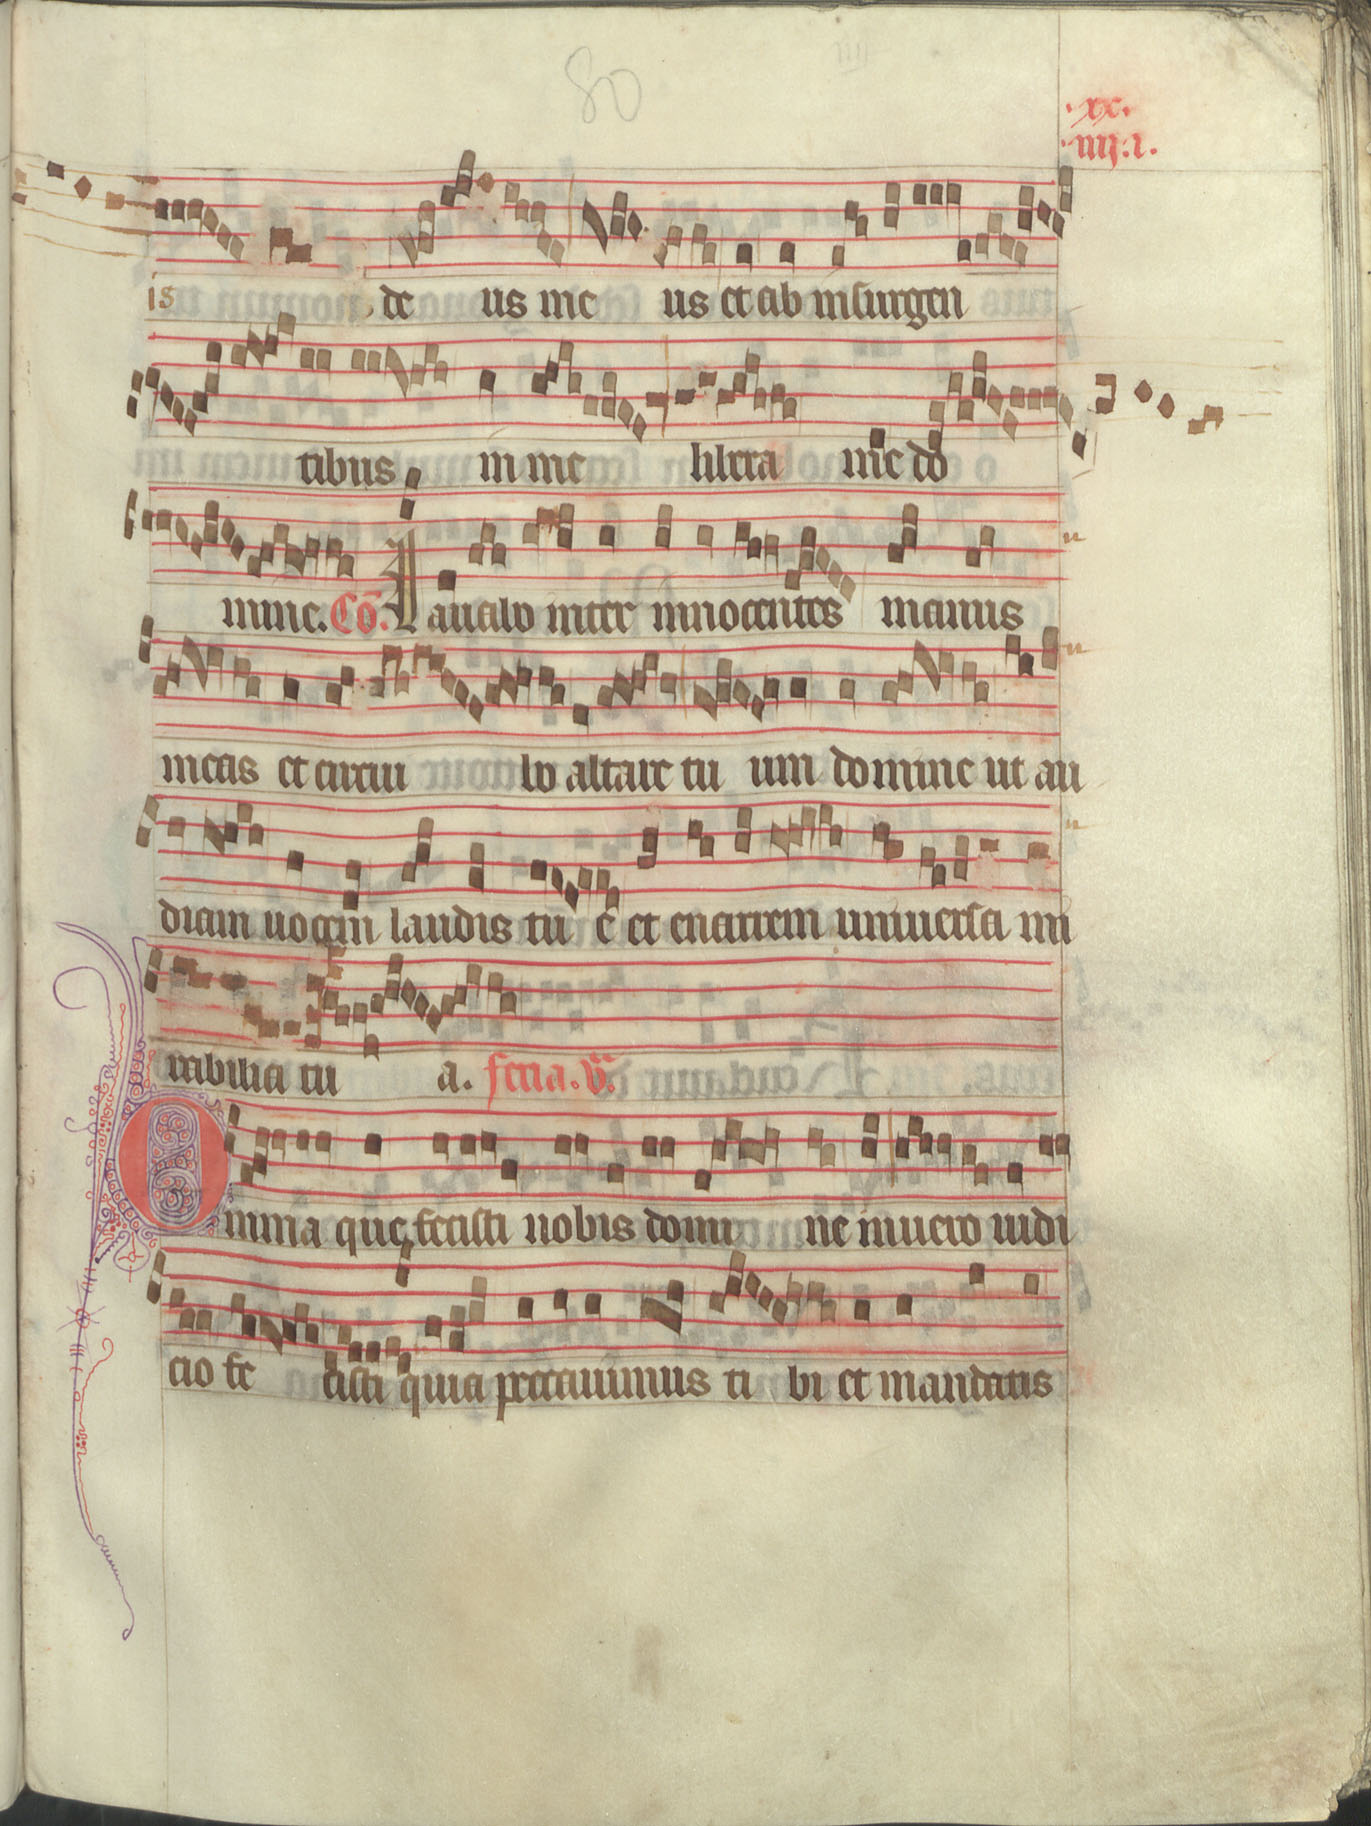 80
.xx.
.iiij.i.
is de us me us et ab insurgen
tibus in me libera me do
mine. Cō. Lauabo inter innocentes manus
meas et circui bo altare tu um domine ut au
diam uocem laudis tu e et enarrem uniuersa mi
rabilia tu a. feria. v.a
Omnia que fecisti nobis domi ne in uero iudi
cio fe cisti quia peccauimus ti bi et mandatis